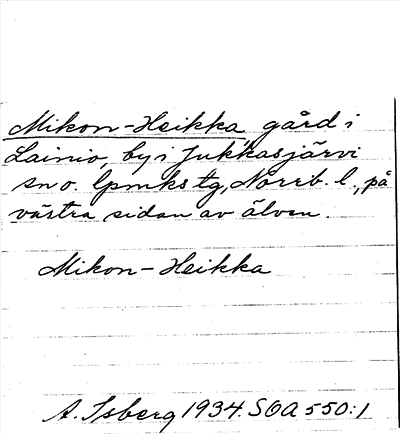 Mikon-Heikka gård i
Lainio, by i Jukkasjärvi
sn o. lpmks tg, Norrb. l., på
västra sidan av älven.
Mikon-Heikka
A. Isberg 1934. SOA 550:1